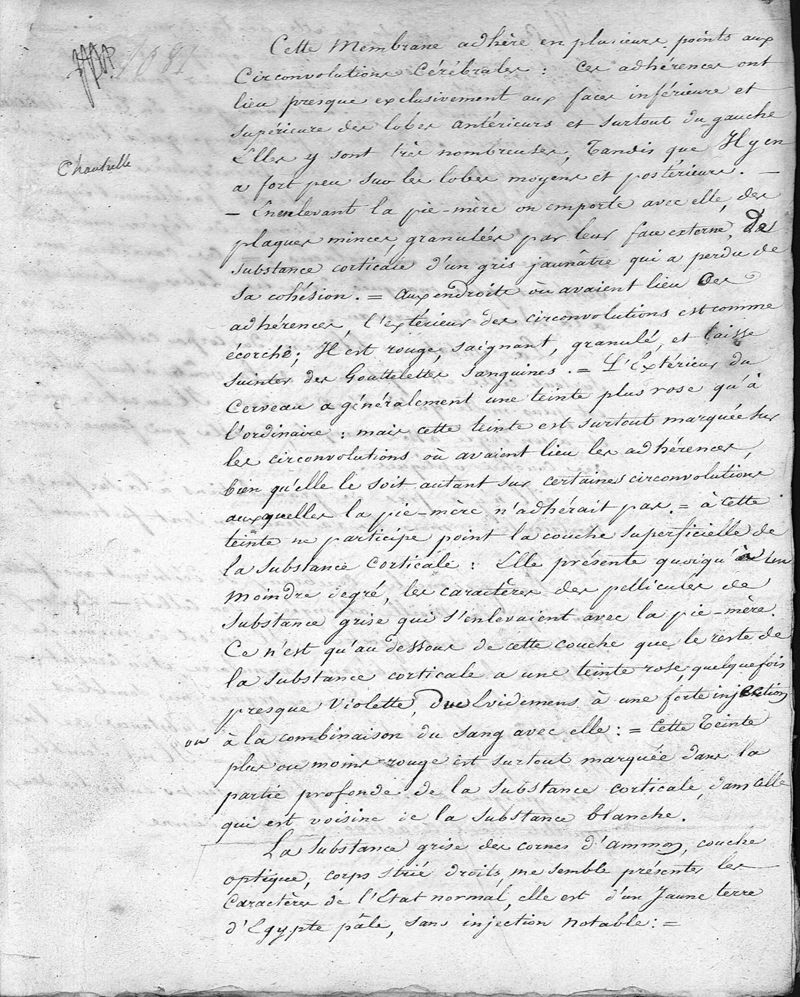 Cette Membrane adhère en plusieurs points aux
Circonvolutions Cérébrales : ces adhérences ont
lieu presque exclusivement aux faces inférieure et
supérieure des lobes antérieurs et surtout du gauche
Elles y sont très nombreuses, tandis que Il y en
Chautrelle
a fort peu sur les lobes moyens et postérieurs. —
— En enlevant la pie-mère on emporte avec elle, des
plaques minces granulées par leur face externe, de
substance corticale d'un gris jaunatre qui a perdu de
sa cohésion. = aux endroits où avaient lieu des
adhérences, l'extérieur des circonvolutions est comme
écorché; Il est rouge, saignant, granulé, et laisse
suinter des Gouttelettes sanguines. = L'Extérieur du
Cerveau a généralement une teinte plus rose qu'à
l'ordinaire : mais cette teinte est surtout marquée sur
les circonvolutions où avaient lieu les adhérences,
bien qu'elle le soit autant sur certaines circonvolutions
auxquelles la pie-mère n'adhérait pas. = à cette
teinte ne participe point la couche superficielle de
la substance corticale : Elle présente quoiqu'à un
moindre degré, les caractères des pellicules de
substance grise qui s'enlevaient avec la pie-mère.
Ce n'est qu'au dessous de cette couche que le reste de
la substance corticale a une teinte rose, quelquefois
presque violette, due évidemens à une forte injection
ou à la combinaison du sang avec elle : = Cette Teinte
plus ou moins rouge est surtout marquée dans la
partie profonde de la substance corticale, dans celle
qui est voisine de la substance blanche.
La substance grise des cornes d'ammon, couche
optique, corps strié droits, me semble présenter les
Caractères de l'Etat normal, elle est d'un Jaune terre
d'Egypte pâle, sans injection notable : =